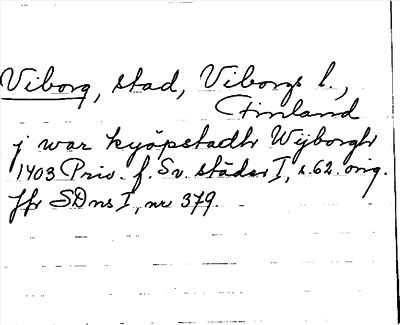 Viborg, stad, Viborgs l.,
Finland
j war kyöpstadh Wijborgh
1403 Priv. f. Sv. städer I, s. 62. orig.
Jfr SDns I, nr 379.